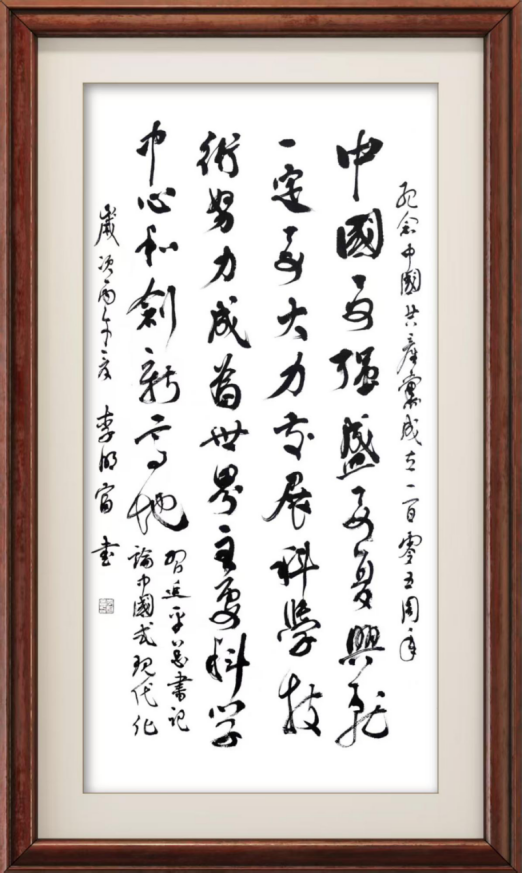 纪念中国共产党成立一百零五周年
中國要强盛要复興就
一定要大力发展科學技
術努力成为世界主要科学
中心和創新高地
习近平总書记
論中國式现代化
歲次丙午之夏 李明富書